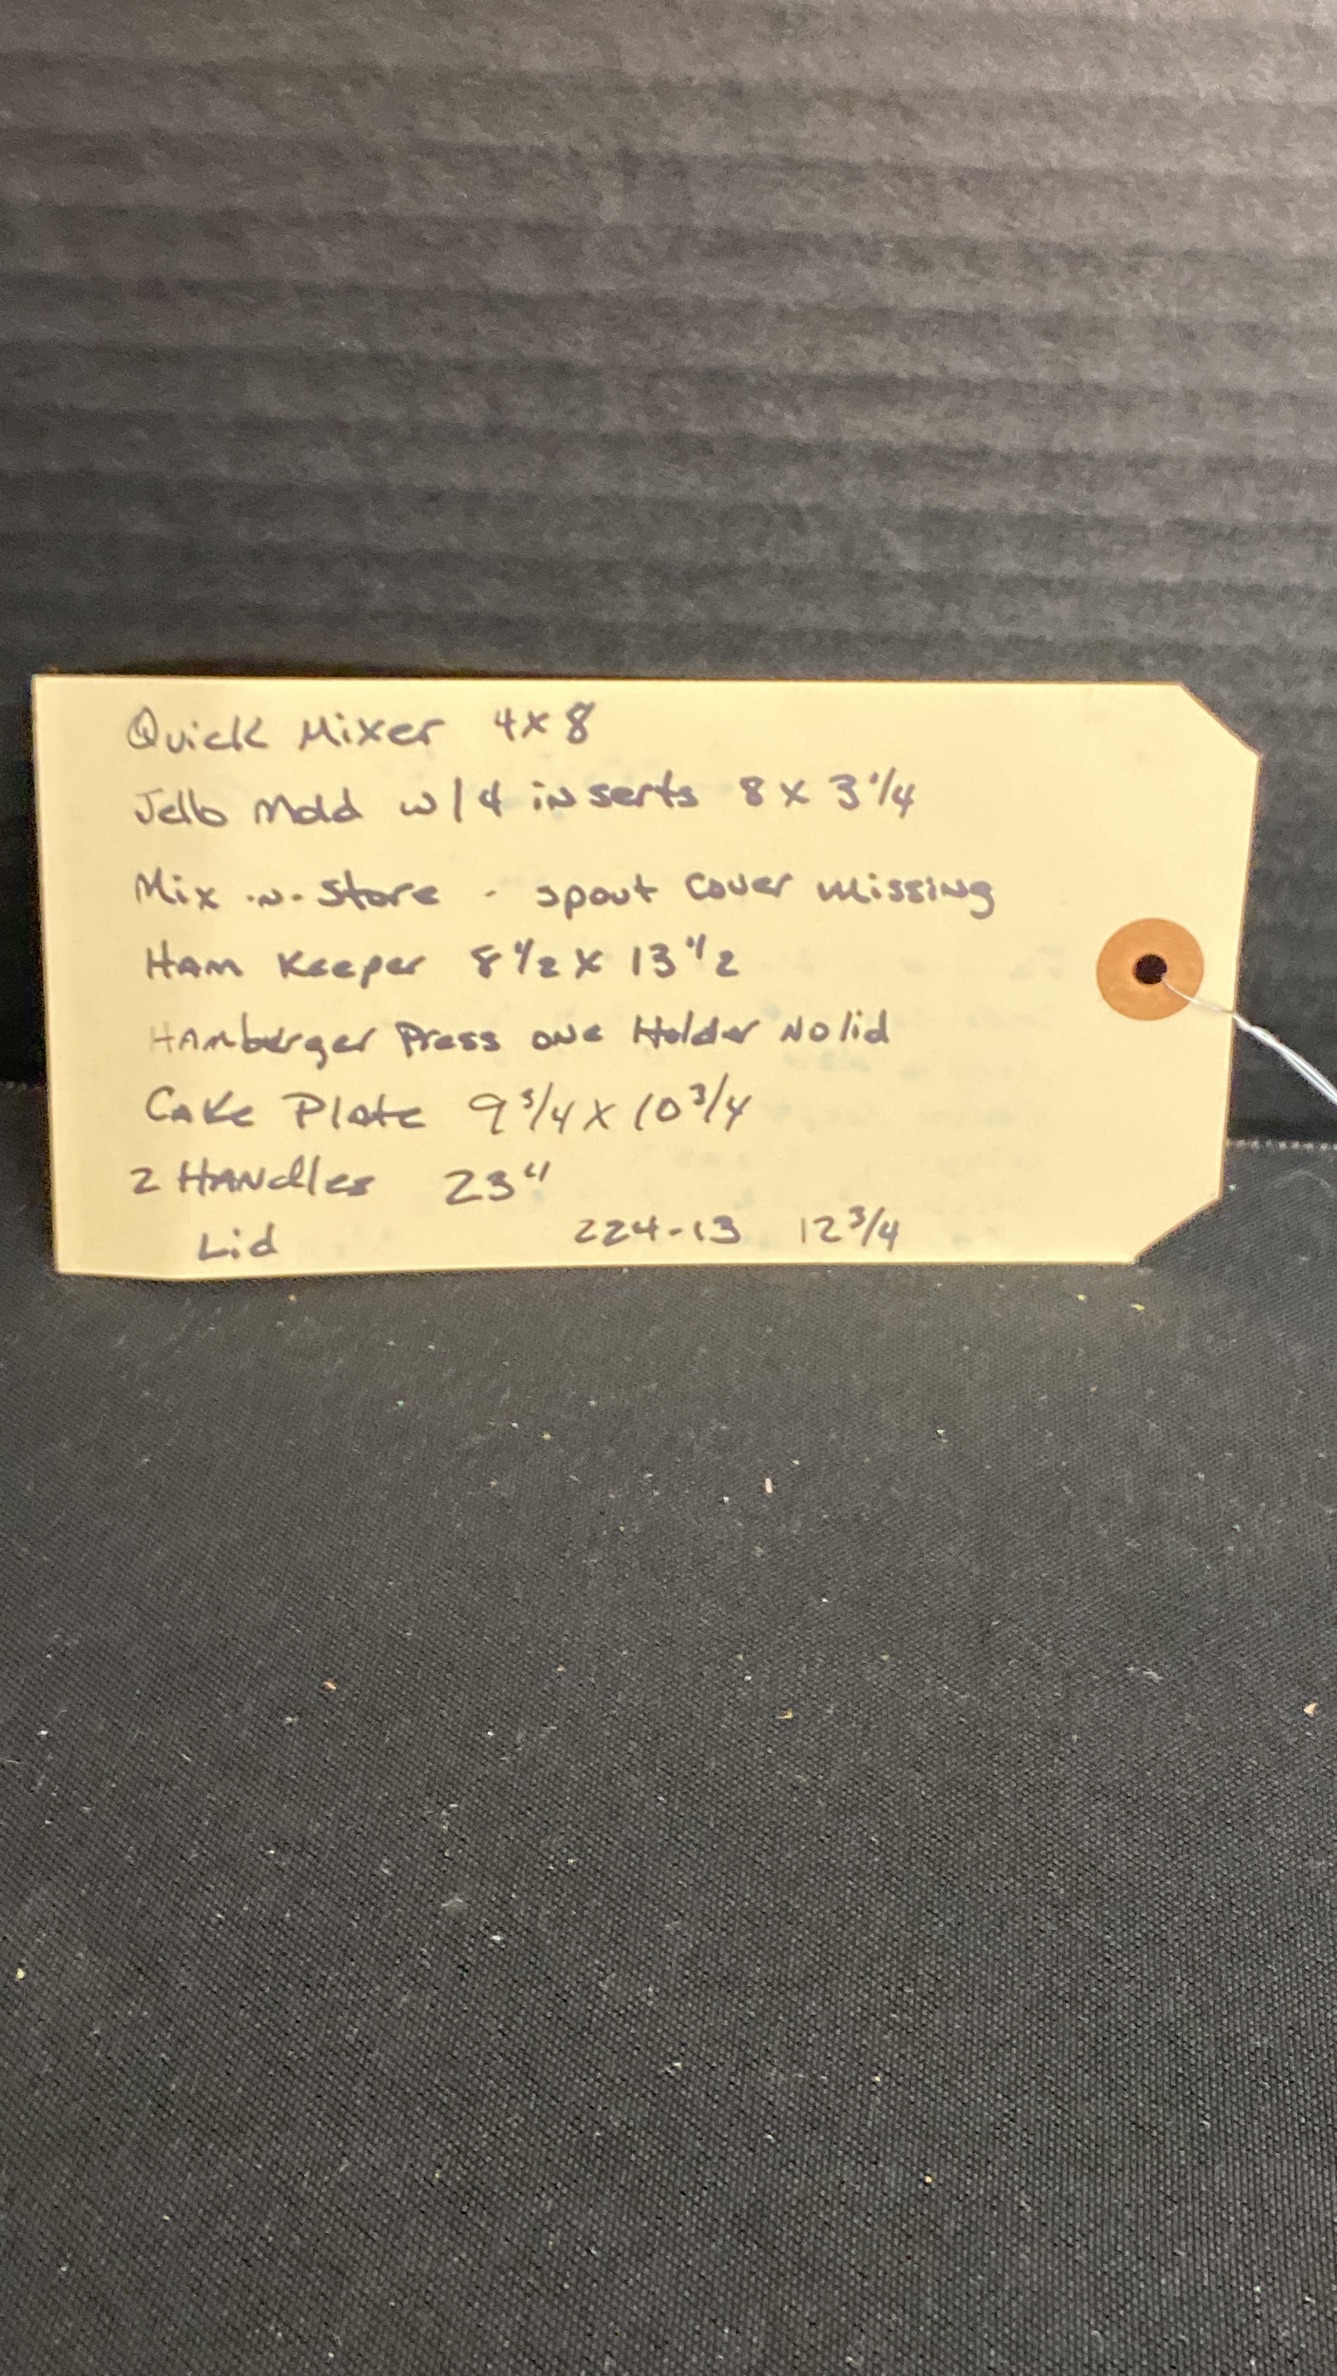 Quick Mixer 4x8
Jello Mold w/4 inserts 8 x 3 1/4
Mix-N-Store - spout cover missing
Ham Keeper 8 1/2 x 13 1/2
Hamburger Press one Holder No lid
Cake Plate 9 3/4 x 10 3/4
2 Handles 23"
Lid 224-13 12 3/4